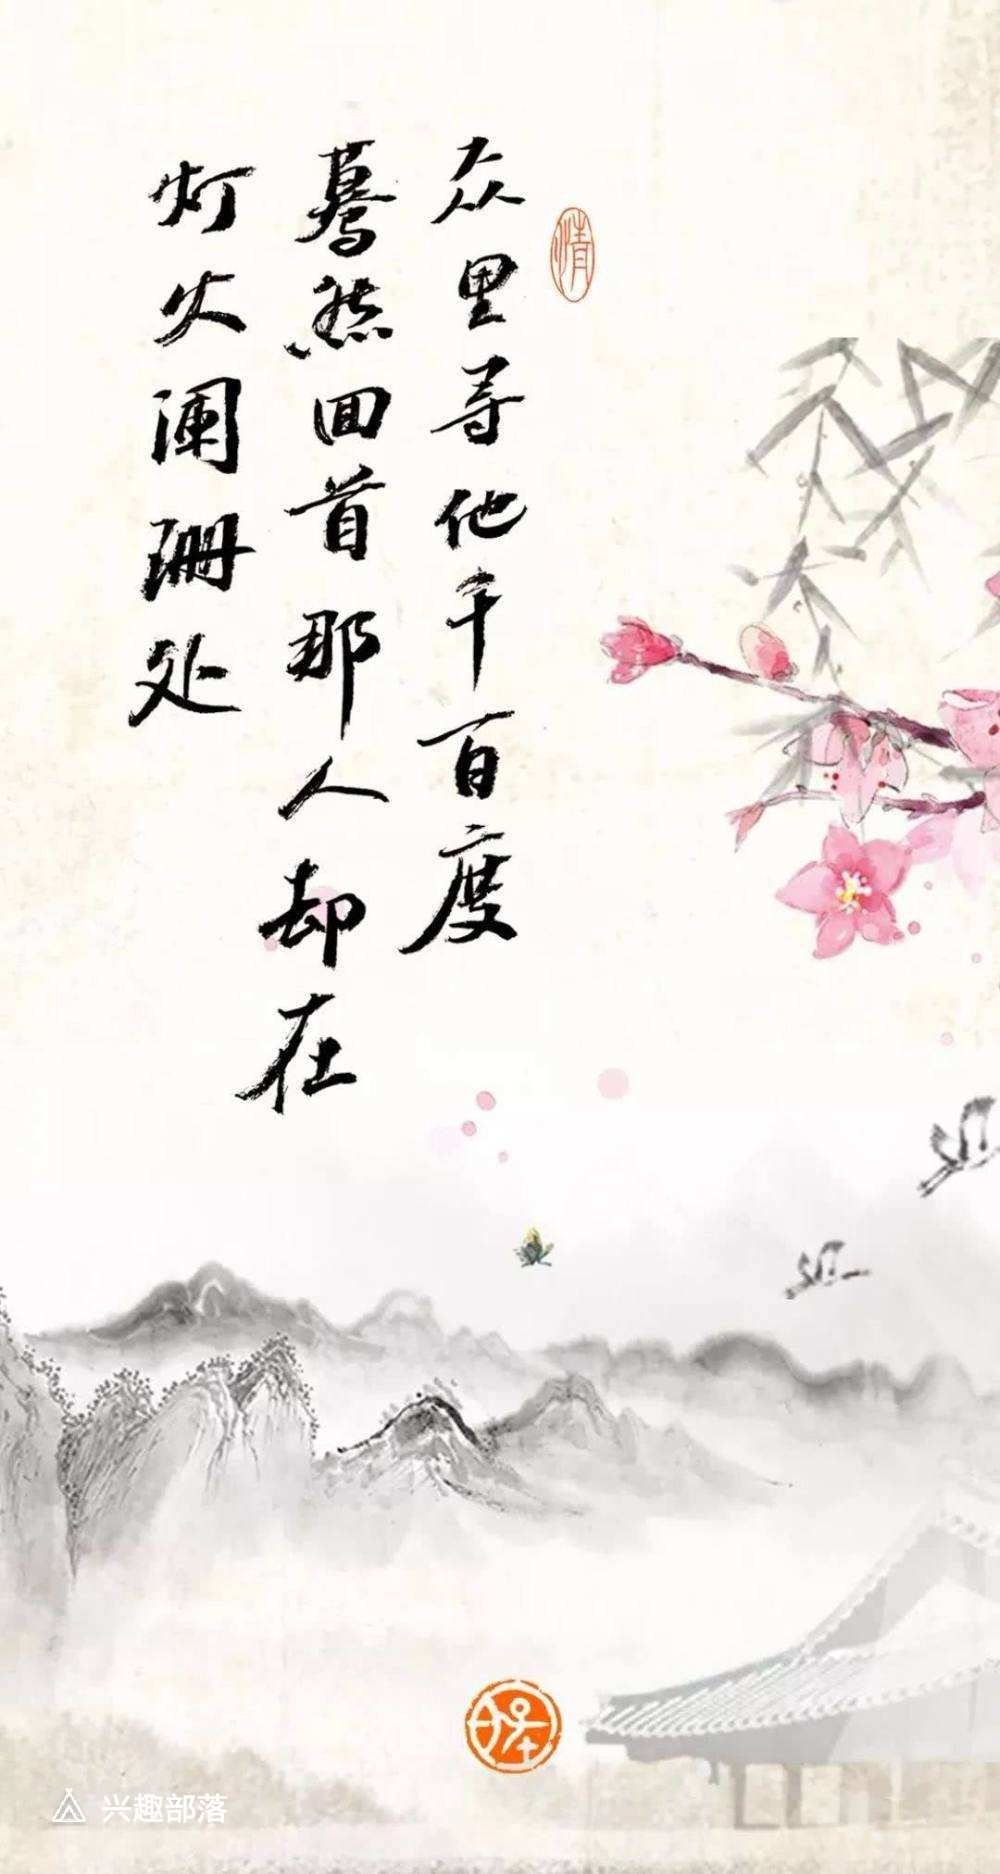 情
众里寻他千百度
蓦然回首那人却在
灯火阑珊处
兴趣部落